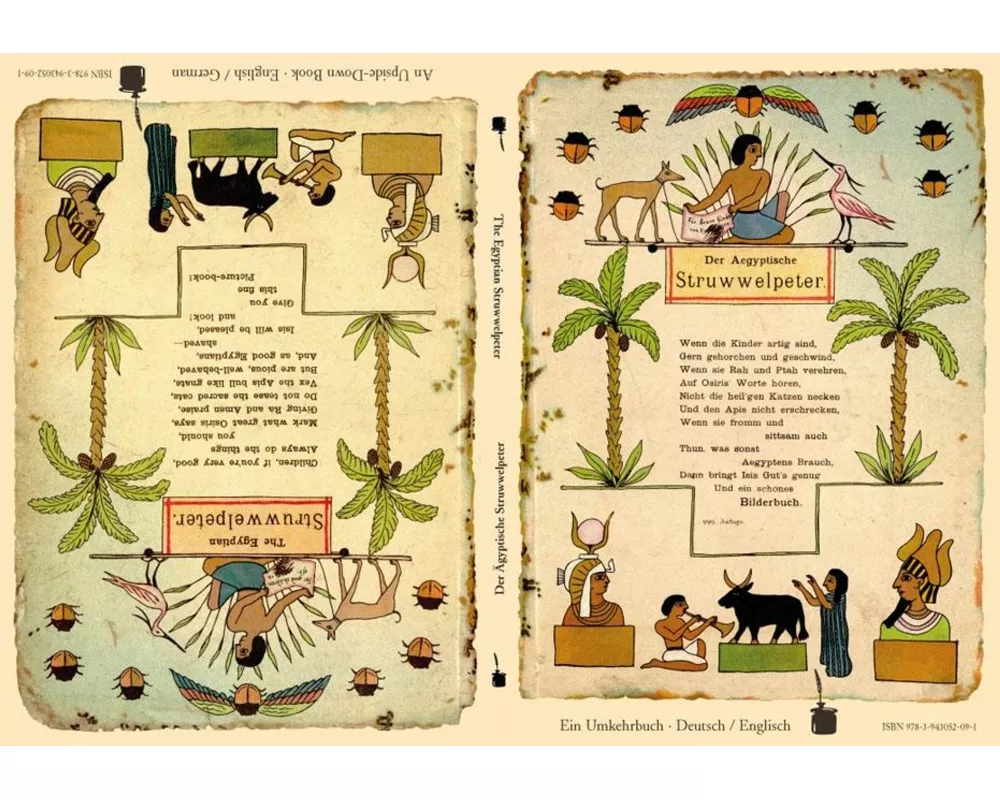 The Egyptian
Struwwelpeter.
Children, if you're very good,
Always do the things
you should,
Mark what great Osiris says,
Giving Ra and Amen praise,
Do not tease the sacred cats,
Vex the Apis bull like gnats,
But are pious, well-behaved,
And, as good Egyptians,
shaved—
Isis will be pleased,
and look!
Give you
this fine
Picture-book!
An Upside-Down Book · English / German
ISBN 978-3-943052-09-1
The Egyptian Struwwelpeter
Der Ägyptische Struwwelpeter
Für brave
Der Aegyptische
Struwwelpeter.
Wenn die Kinder artig sind,
Gern gehorchen und geschwind,
Wenn sie Rah und Ptah verehren,
Auf Osiris' Worte hören,
Nicht die heil'gen Katzen necken
Und den Apis nicht erschrecken,
Wenn sie fromm und
sittsam auch
Thun, was sonst
Aegyptens Brauch,
Dann bringt Isis Gut's genug
Und ein schönes
Bilderbuch.
999. Auflage.
Ein Umkehrbuch · Deutsch / Englisch
ISBN 978-3-943052-09-1